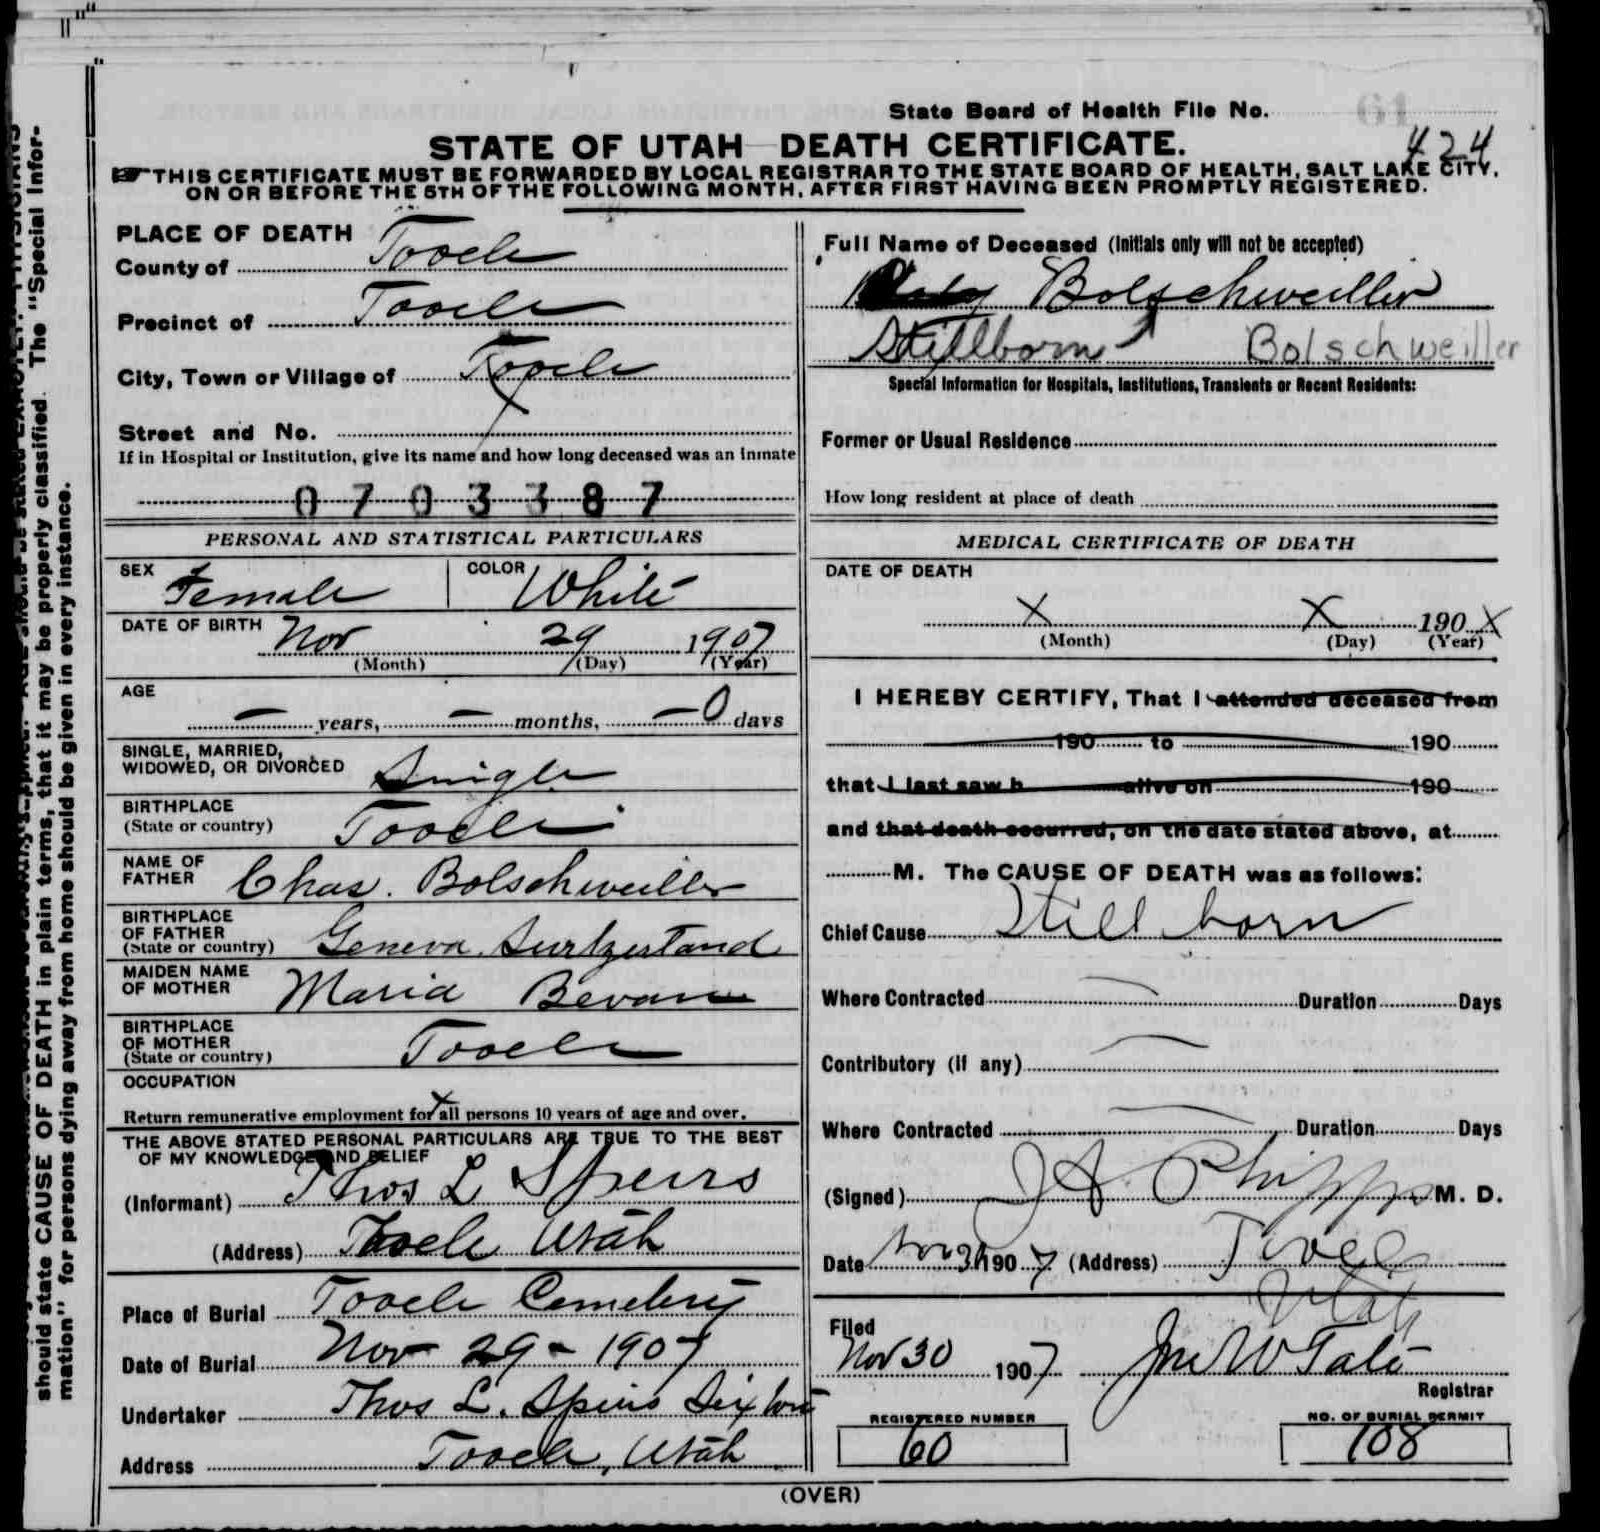 State Board of Health File No. 61
424
STATE OF UTAH—DEATH CERTIFICATE.
THIS CERTIFICATE MUST BE FORWARDED BY LOCAL REGISTRAR TO THE STATE BOARD OF HEALTH, SALT LAKE CITY,
ON OR BEFORE THE 5TH OF THE FOLLOWING MONTH, AFTER FIRST HAVING BEEN PROMPTLY REGISTERED.
PLACE OF DEATH
County of Tooele
Precinct of Tooele
City, Town or Village of Tooele
Street and No.
If in Hospital or Institution, give its name and how long deceased was an inmate
0703387
PERSONAL AND STATISTICAL PARTICULARS
SEX Female COLOR White
DATE OF BIRTH Nov 29 1907
(Month) (Day) (Year)
AGE
— years, — months, — 0 days
SINGLE, MARRIED,
WIDOWED, OR DIVORCED Single
BIRTHPLACE
(State or country) Tooele
NAME OF
FATHER Chas. Bolschweiller
BIRTHPLACE
OF FATHER
(State or country) Geneva Switzerland
MAIDEN NAME
OF MOTHER Maria Bevan
BIRTHPLACE
OF MOTHER
(State or country) Tooele
OCCUPATION
x
Return remunerative employment for all persons 10 years of age and over.
THE ABOVE STATED PERSONAL PARTICULARS ARE TRUE TO THE BEST
OF MY KNOWLEDGE AND BELIEF
(Informant) Thos L Speirs
(Address) Tooele Utah
Place of Burial Tooele Cemetery
Date of Burial Nov 29 - 1907
Undertaker Thos L. Speirs Sexton
Address Tooele, Utah
Full Name of Deceased (Initials only will not be accepted)
Bolschweiller
Stillborn Bolschweiller
Special Information for Hospitals, Institutions, Transients or Recent Residents:
Former or Usual Residence
How long resident at place of death
MEDICAL CERTIFICATE OF DEATH
DATE OF DEATH
X X 190 X
(Month) (Day) (Year)
I HEREBY CERTIFY, That I attended deceased from
190 to 190
that I last saw h alive on 190
and that death occurred, on the date stated above, at
M. The CAUSE OF DEATH was as follows:
Chief Cause Still born
Where Contracted — Duration Days
Contributory (if any) —
Where Contracted — Duration Days
(Signed) J A Phipps M. D.
Date Nov 190 7 (Address) Tooele
Utah
Filed
Nov 30 1907 Jno W Tate
Registrar
REGISTERED NUMBER
60
NO. OF BURIAL PERMIT
108
(OVER)
should state CAUSE OF DEATH in plain terms, that it may be properly classified. The "Special Infor-
mation" for persons dying away from home should be given in every instance.